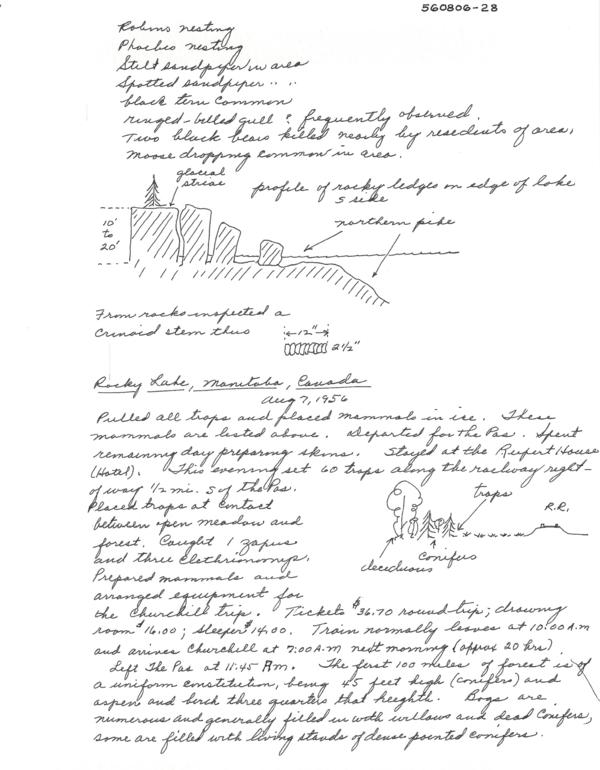 560806-28
Robins nesting
Phoebes nesting
Stilt sandpiper in area
Spotted sandpiper " "
black tern common
ringed-billed gull ? frequently observed.
Two black bears killed nearby by residents of area.
Moose dropping common in area.
glacial
striae
profile of rocky ledges on edge of lake
S side
10'
to
20'
northern pike
From rocks inspected a
Crinoid stem thus
12"
2 1/2"
Rocky Lake, Manitoba, Canada
Aug 7, 1956
Pulled all traps and placed mammals in ice. These
mammals are listed above. Departed for The Pas. Spent
remaining day preparing skins. Stayed at the Rupert House
(Hotel). This evening set 60 traps along the railway right-
of way 1/2 mi. S of The Pas.
Placed traps at contact
between open meadow and
forest. Caught 1 Zapus
and three Clethrionomys.
Prepared mammals and
arranged equipment for
traps
R.R.
deciduous
conifers
the Churchill trip. Tickets $36.70 round-trip; drawing
room $16.00; sleeper $14.00. Train normally leaves at 10:00 A.M
and arrives Churchill at 7:00 A.M next morning (approx 20 hrs)
Left The Pas at 11:45 A.m. The first 100 miles of forest is of
a uniform constitution, being 45 feet high (conifers) and
aspen and birch three quarters that heighth. Bogs are
numerous and generally filled in with willows and dead conifers,
some are filled with living stands of dense pointed conifers.